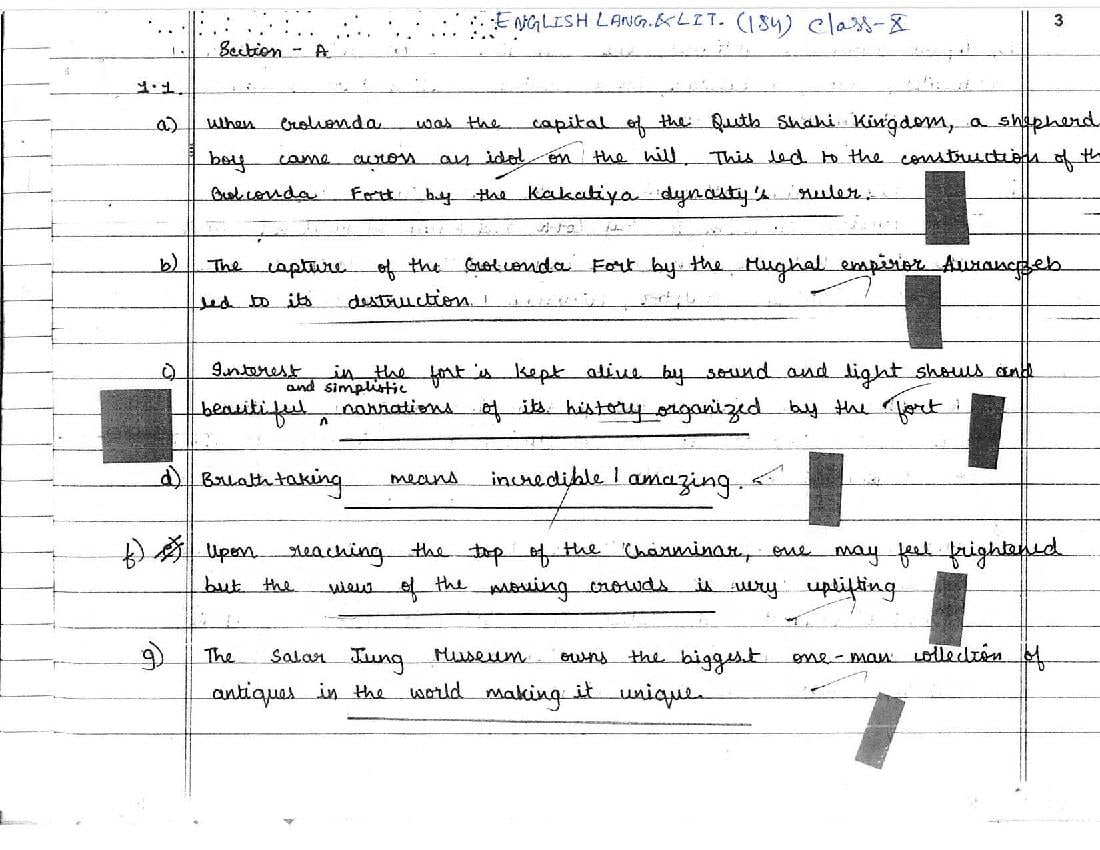 ENGLISH LANG.&LIT. (184) Class-X
3
Section - A
1.1.
a) When Golconda was the capital of the Qutb Shahi Kingdom, a shepherd
boy came across an idol on the hill. This led to the construction of th
Golconda Fort by the Kakatiya dynasty's ruler.
b) The capture of the Golconda Fort by the Mughal empiror Aurangzeb
led to its destruction.
c) Interest in the fort is kept alive by sound and light shows and
and simplistic
beautiful ^ narrations of its history organized by the fort.
d) Breathtaking means incredible / amazing.
f) Upon reaching the top of the Charminar, one may feel frightened
but the view of the moving crowds is very uplifting
g) The Salar Jung Museum owns the biggest one-man collection of
antiques in the world making it unique.